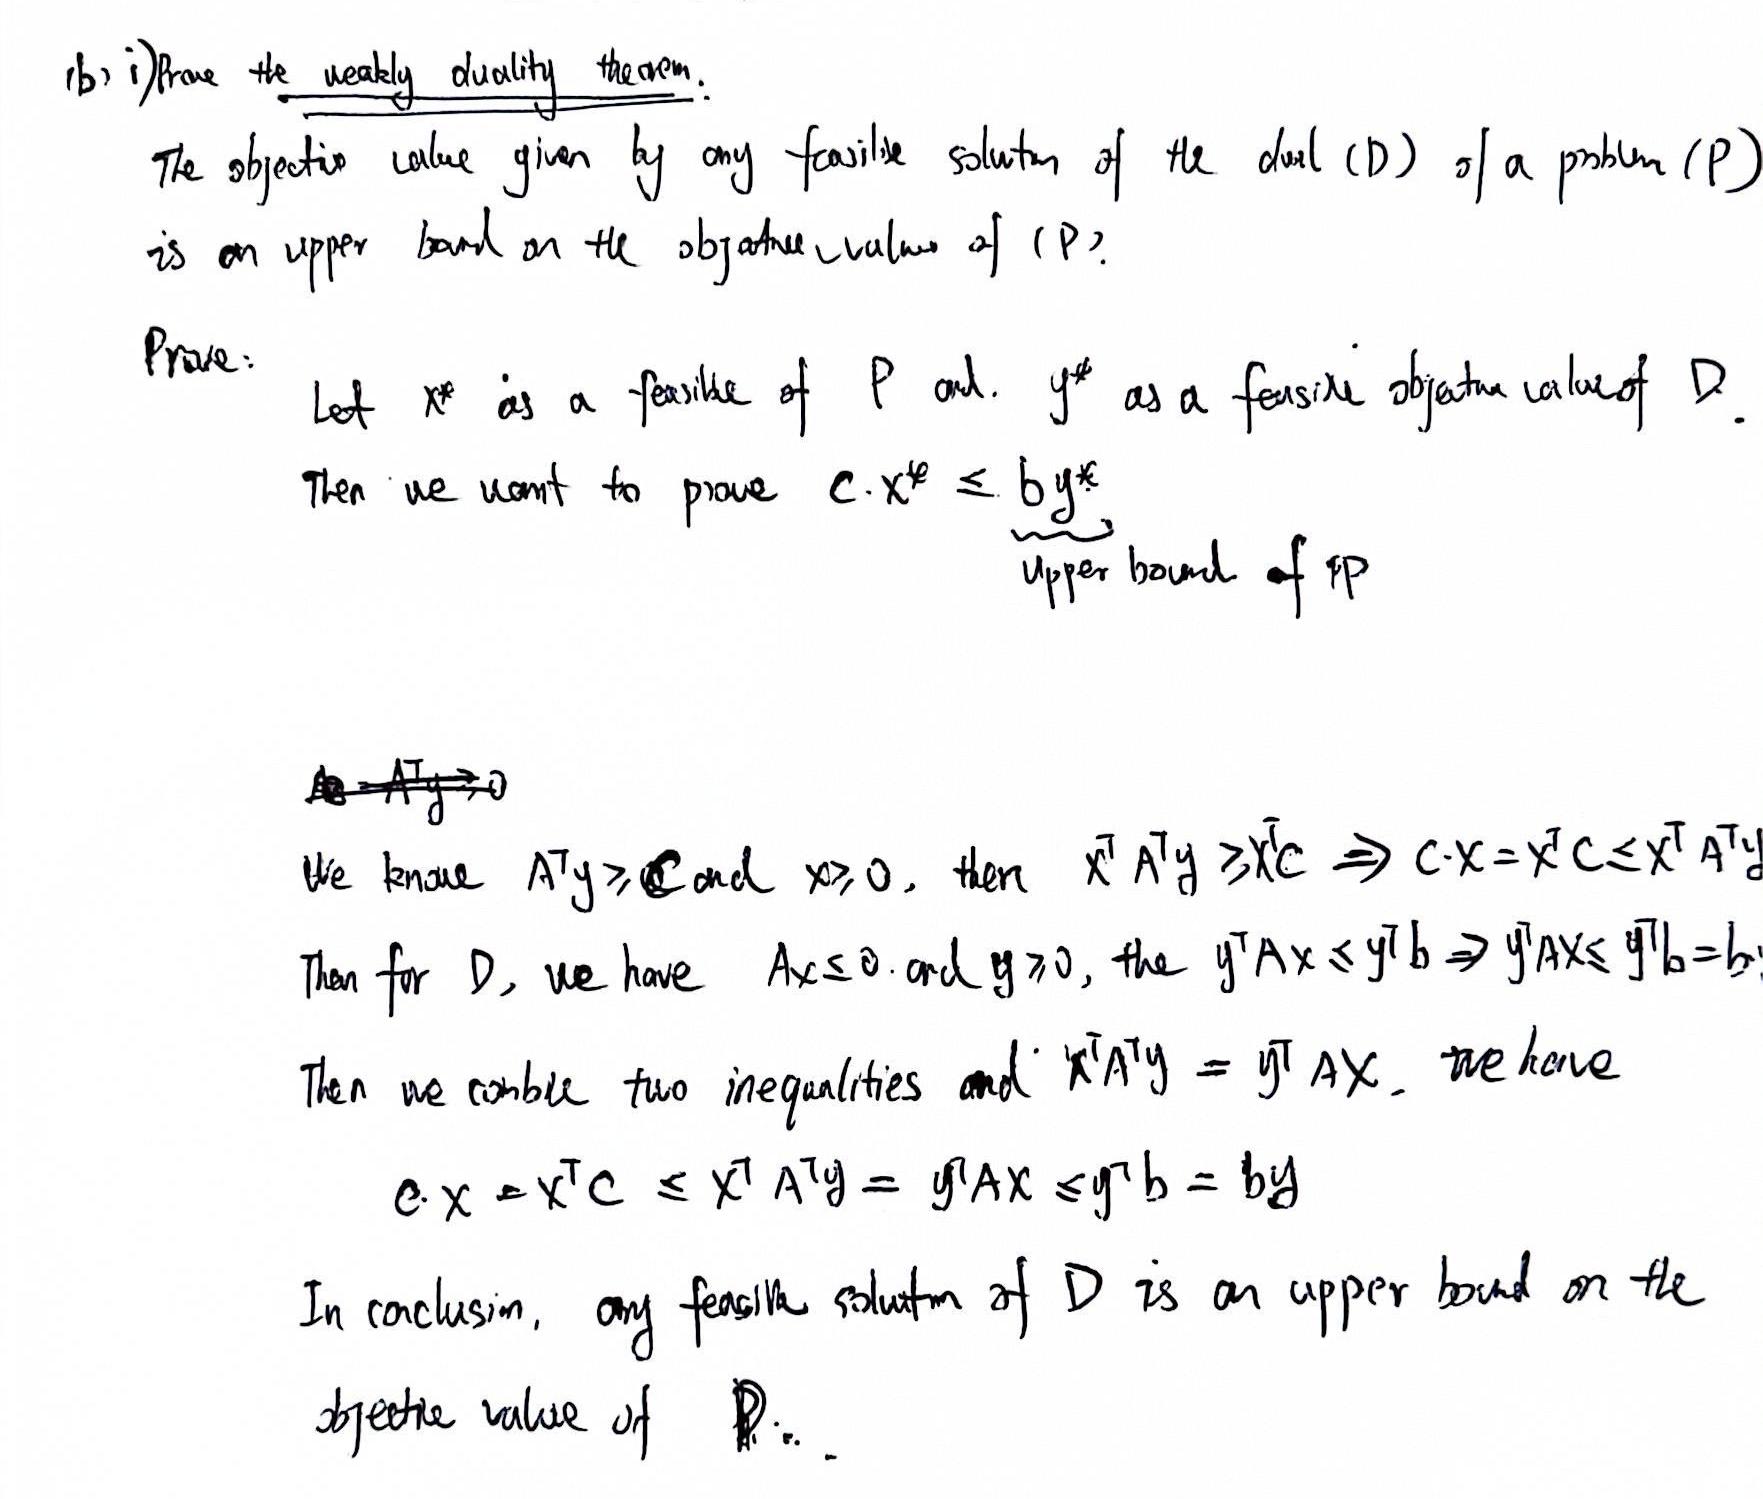 (b) i) Prove the weakly duality theorem.
The objective value given by any feasible solution of the dual (D) of a problem (P)
is an upper bound on the objective values of (P).
Prove:
Let x* as a feasible of P and. y* as a feasible objective value of D.
Then we want to prove c.x* ≤ by*
upper bound of P
We know Aᵀy ≥ C and x ≥ 0, then xᵀAᵀy ≥ xᵀc ⇒ c·x = xᵀc ≤ xᵀAᵀy
Then for D, we have Ax ≤ 0. and y ≥ 0, the yᵀAx ≤ yᵀb ⇒ yᵀAx ≤ yᵀb = b
Then we comble two inequalities and xᵀAᵀy = yᵀAx. we have
c·x = xᵀc ≤ xᵀAᵀy = yᵀAx ≤ yᵀb = by
In conclusion, any feasible solution of D is an upper bound on the
objective value of P.